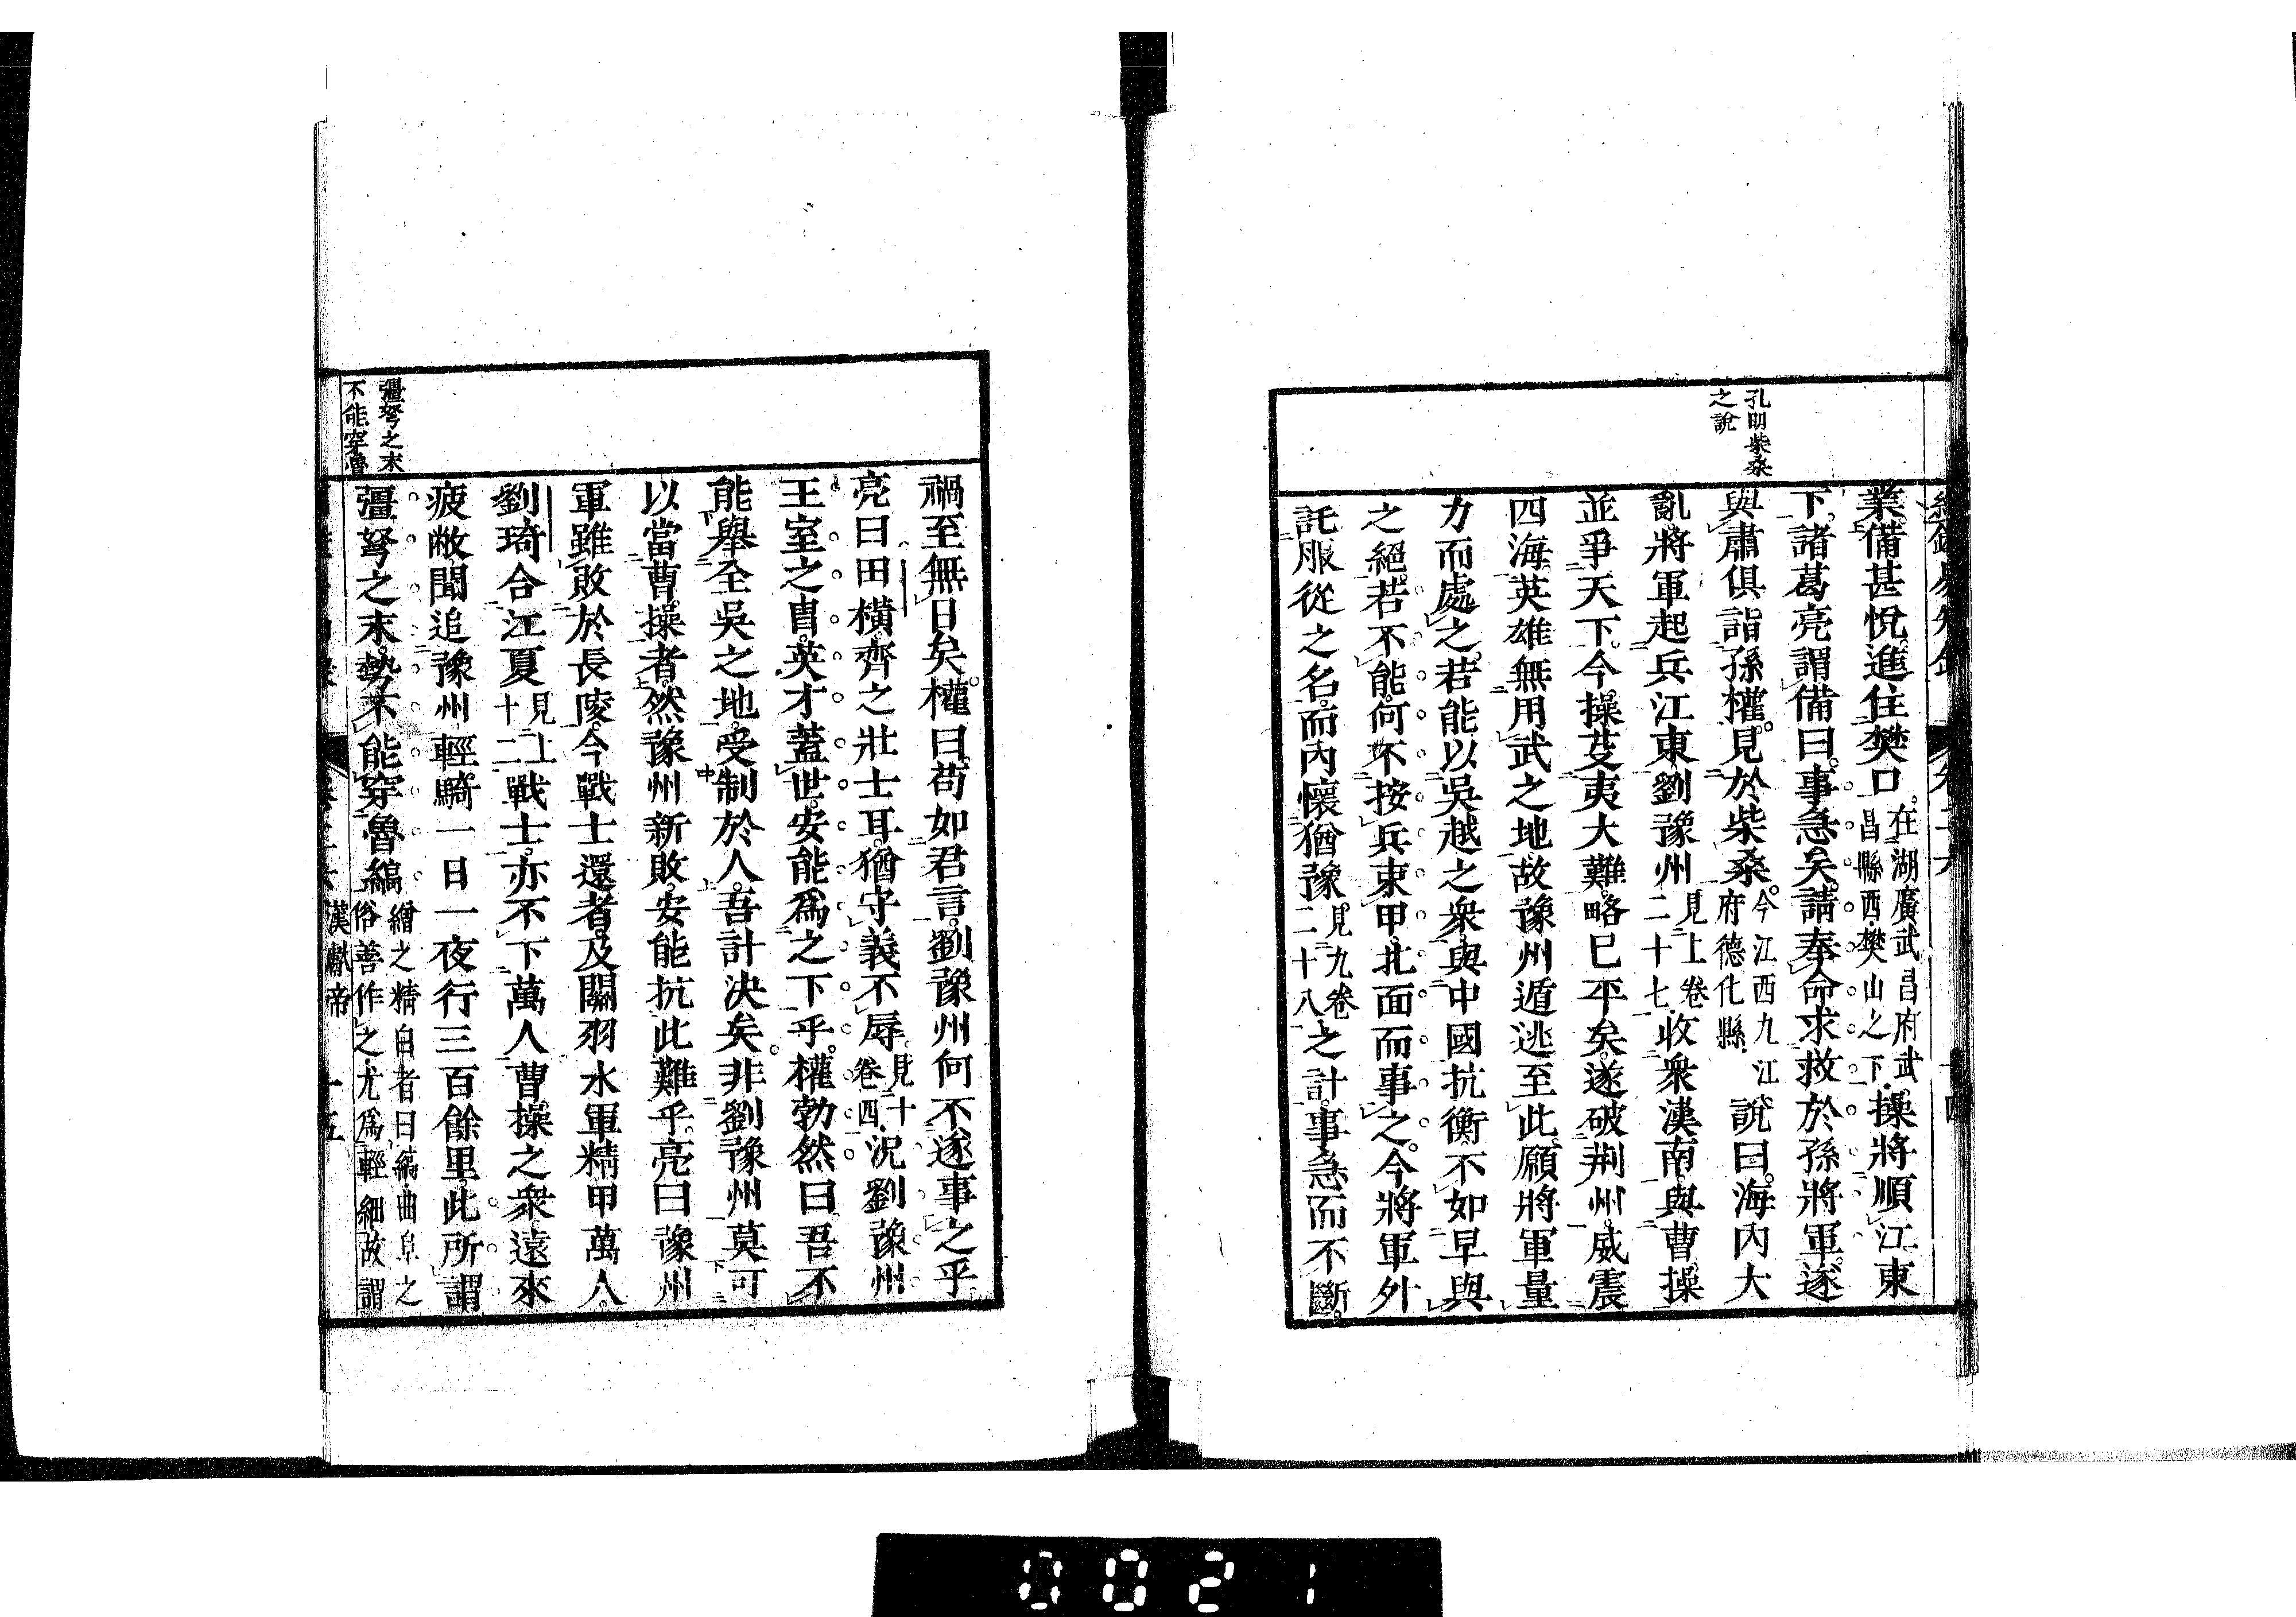 孔明柴桑
之說
業備甚悅進住樊口在湖廣武昌府武昌縣西樊山之下操將順江東
下諸葛亮謂備曰事急矣請奉命求救於孫將軍遂
與肅俱詣孫權見於柴桑今江西九江府德化縣說曰海內大
亂將軍起兵江東劉豫州見上卷二十七收衆漢南與曹操
並爭天下今操芟夷大難略已平矣遂破荆州威震
四海英雄無用武之地故豫州遁逃至此願將軍量
力而處之若能以吳越之衆與中國抗衡不如早與
之絕若不能何不按兵束甲北面而事之今將軍外
託服從之名而內懷猶豫見九卷二十八之計事急而不斷
禍至無日矣權曰苟如君言劉豫州何不遂事之乎
亮曰田橫齊之壯士耳猶守義不辱見十卷四況劉豫州
王室之胄英才蓋世安能爲之下乎權勃然曰吾不
能舉全吳之地受制於人吾計決矣非劉豫州莫可
以當曹操者然豫州新敗安能抗此難乎亮曰豫州
軍雖敗於長陵今戰士還者及關羽水軍精甲萬人
劉琦合江夏見上十二戰士亦不下萬人曹操之衆遠來
疲敝聞追豫州輕騎一日一夜行三百餘里此所謂
彊弩之末勢不能穿魯縞繒之精白者曰縞曲阜之俗善作之尤爲輕細故謂
彊弩之末
不能穿魯
漢獻帝
0021